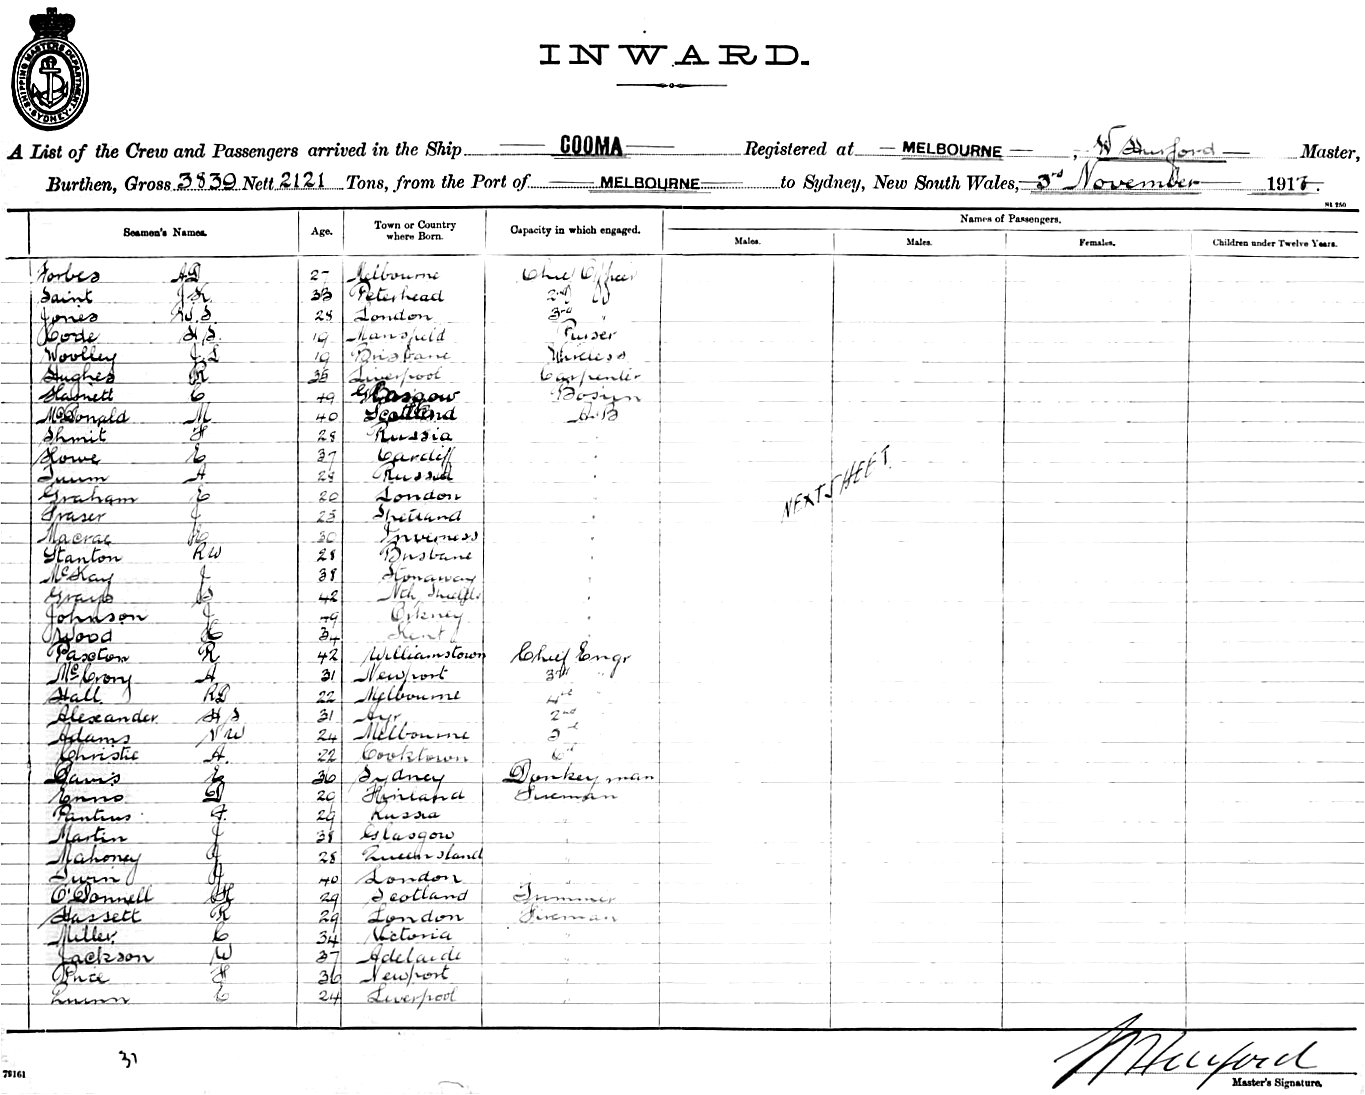 SHIPPING MASTERS DEPARTMENT SYDNEY
INWARD.
A List of the Crew and Passengers arrived in the Ship COOMA Registered at MELBOURNE, W Hurford Master,
Burthen, Gross 3839 Nett 2121 Tons, from the Port of MELBOURNE to Sydney, New South Wales, 3rd November 1917.
Names of Passengers.
Seamen's Names. Age. Town or Country where Born. Capacity in which engaged. Males. Males. Females. Children under Twelve Years.
Forbes AD 27 Melbourne Chief Officer
Saint J 33 Peterhead 2nd
Jones W.S. 28 London 3rd "
Code H.S. 19 Mansfield Purser
Woolley J.L 19 Brisbane Wireless
Hughes R 35 Liverpool Carpenter
Hasnett C 49 Glasgow Bosun
McDonald M 40 Scotland A.B
Shmit F 28 Russia "
Howe E 37 Cardiff "
Tuum A 28 Russia "
Graham E 20 London "
Fraser J 25 Shetland "
Macrae 30 Inverness "
Stanton R W 28 Brisbane "
McKay J 38 Stonaway "
Grays 42 Nth Shields "
Johnson J 49 Orkney "
Wood H 34 Kent "
Paxton R 42 Williamstown Chief Engr
McCrory A 31 Newport 3rd "
Hall RD 22 Melbourne 4th
Alexander H S 31 Ayr 2nd
Adams N W 24 Melbourne 5th
Christie A. 22 Cooktown 6th
Davis E 36 Sydney Donkeyman
Enno 29 Finland Fireman
Pantius F. 29 Russia "
Martin J 38 Glasgow "
Mahoney J 28 Queensland "
J 40 London "
O'Donnell H 29 Scotland Trimmer
Hassett R 29 London Fireman
Miller C 34 Victoria "
Jackson W 37 Adelaide "
Price F 36 Newport "
Quinn C 24 Liverpool "
NEXT SHEET
37
78161
W Hurford
Master's Signature.